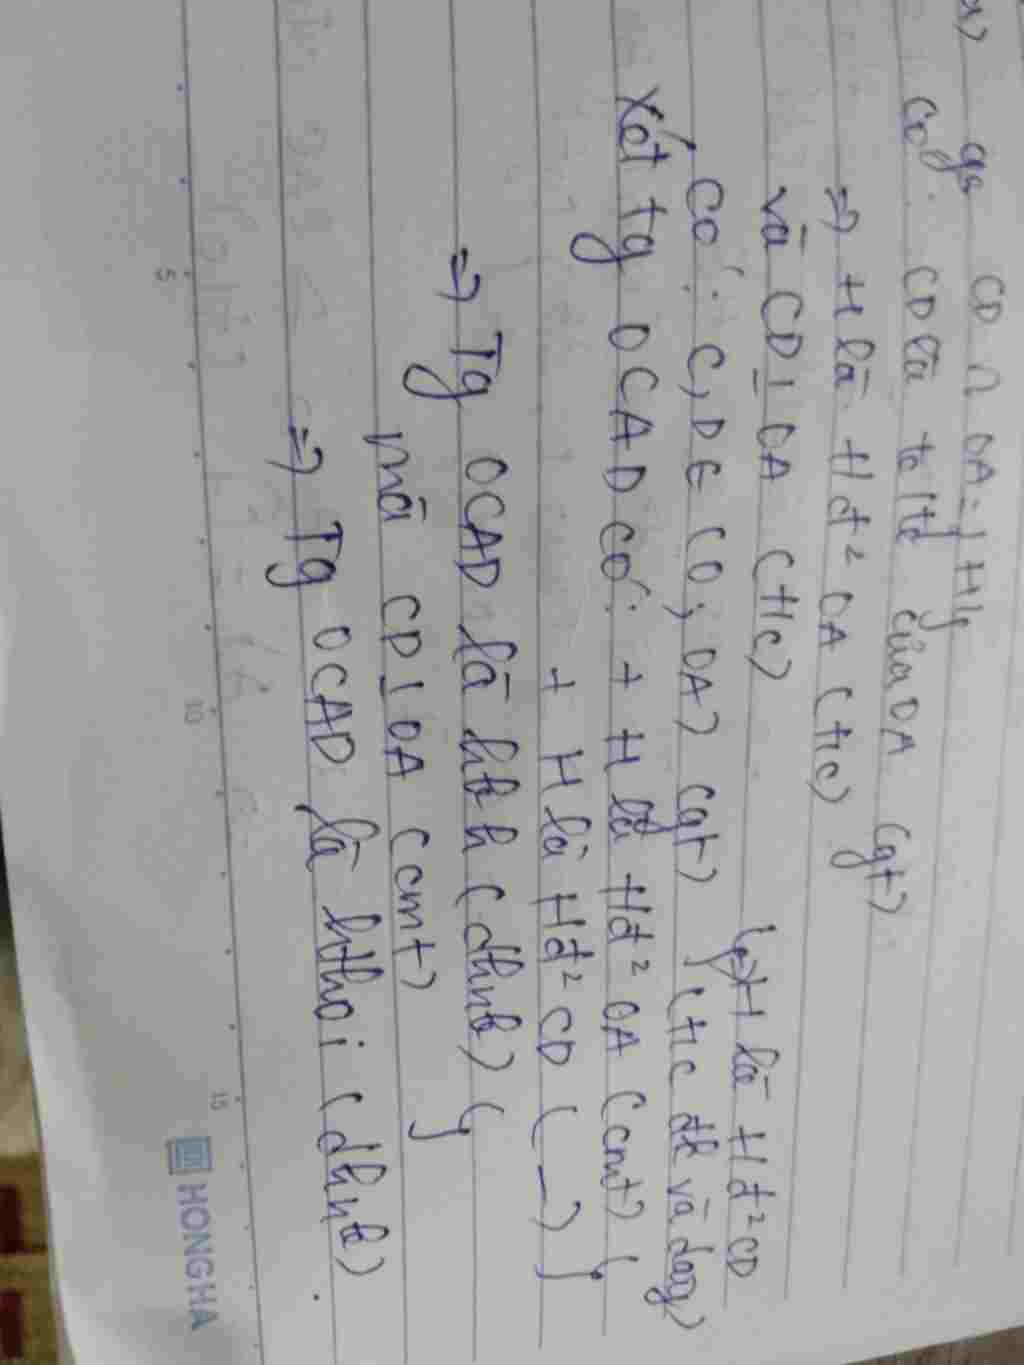 a) gs CD ∩ OA = {H}
Có: CD là tc ltđ của OA (gt)
=> H là Hđ² OA (t/c)
và CD ⊥ OA (t/c) => H là Hđ² CD
Có: C, D ∈ (O; OA) (gt) } (t/c đk và dây)
Xét tg OCAD có: + H là Hđ² OA (cmt) }
+ H là Hđ² CD ( _ ) }
=> Tg OCAD là hbh (dhnb) }
mà CD ⊥ OA (cmt) }
=> Tg OCAD là hthoi (dhnb)
5
10
15
HONGHA